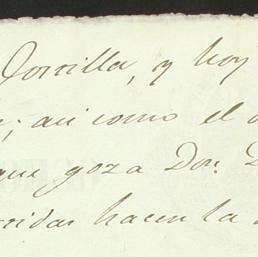 Zorrilla, y hoy
asi como el
que goza Don.
hacen la